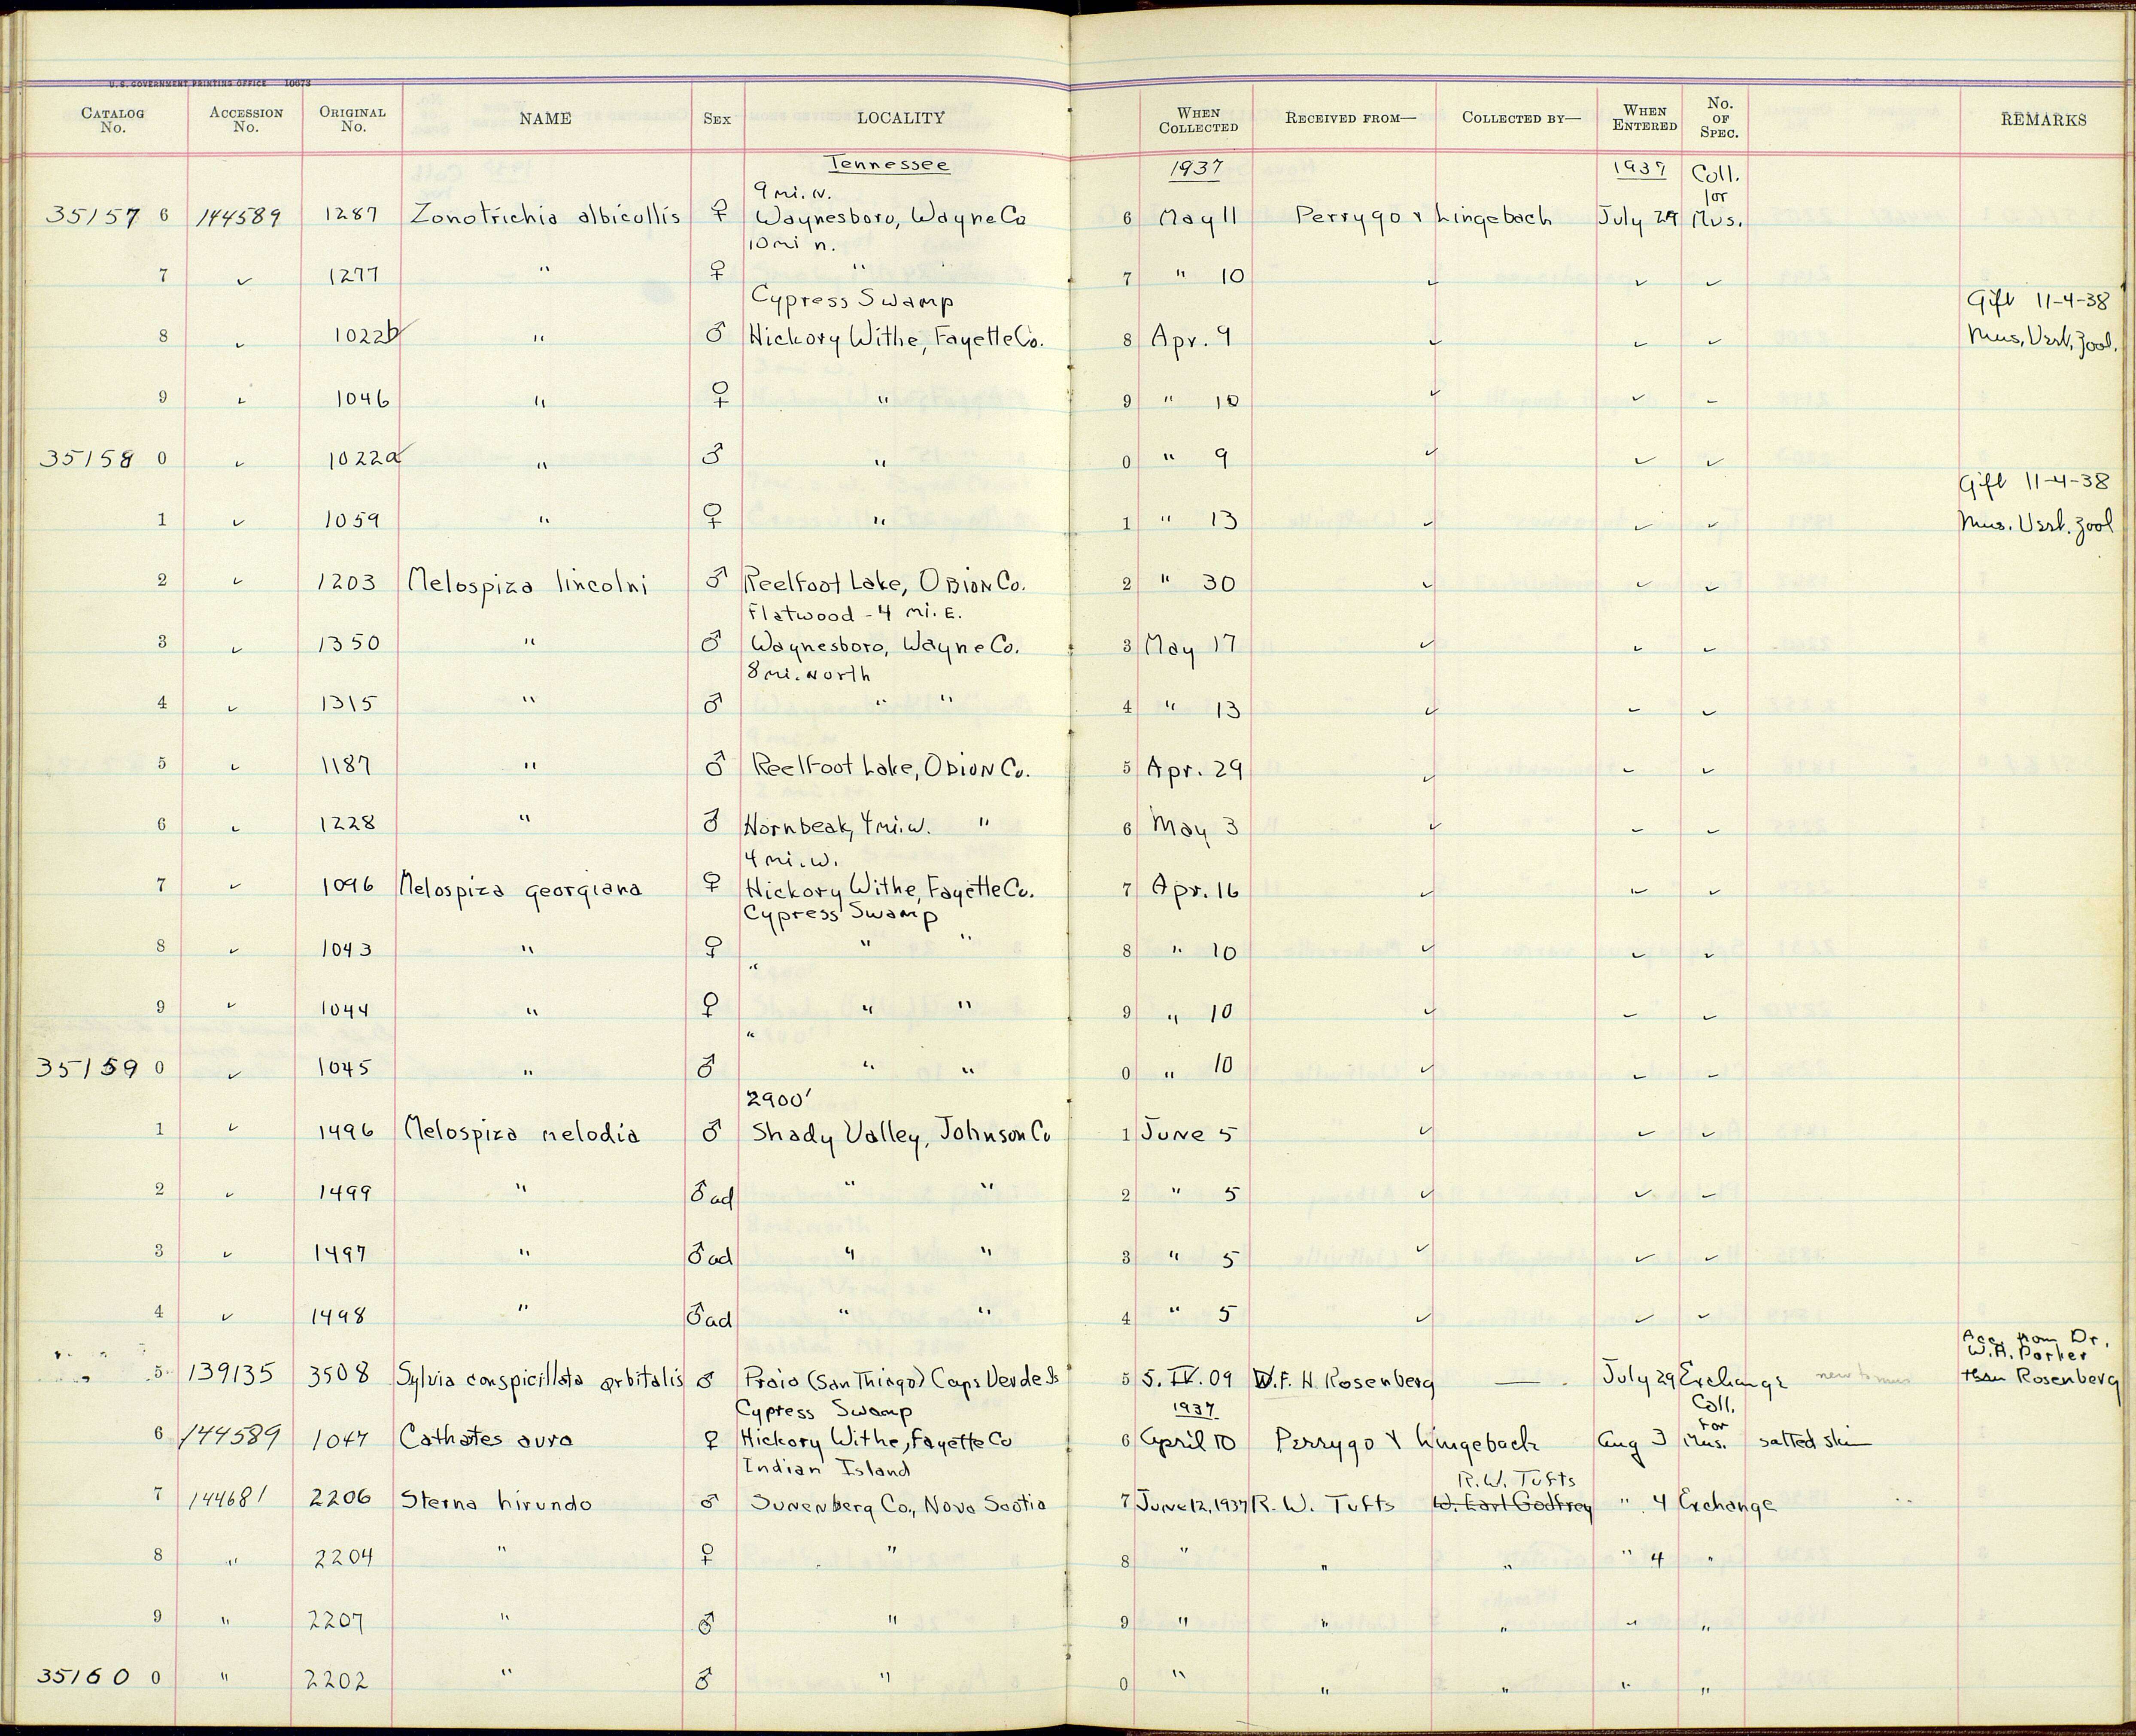 U.S. GOVERNMENT PRINTING OFFICE 10673
CATALOG No. ACCESSION No. ORIGINAL No. NAME SEX LOCALITY WHEN COLLECTED RECEIVED FROM— COLLECTED BY— WHEN ENTERED No. OF SPEC. REMARKS
Tennessee 1937 1937 Coll.
9 mi. N. for
35157 6 144589 1287 Zonotrichia albicollis ♀ Waynesboro, Wayne Co 6 May 11 Perrygo & Lingebach July 29 Mus.
10 mi n.
7 ✓ 1277 " ♀ " 7 " 10 ✓ ✓ ✓
Cypress Swamp Gift 11-4-38
8 ✓ 1022b " ♂ Hickory Withe, Fayette Co. 8 Apr. 9 ✓ ✓ ✓ Mus. Vert. Zool.
9 ✓ 1046 " ♀ " 9 " 10 ✓ ✓ ✓
35158 0 ✓ 1022a " ♂ " 0 " 9 ✓ ✓ ✓
Gift 11-4-38
1 ✓ 1059 " ♀ " 1 " 13 ✓ ✓ ✓ Mus. Vert. Zool
2 ✓ 1203 Melospiza lincolni ♂ Reelfoot Lake, Obion Co. 2 " 30 ✓ ✓ ✓
Flatwood - 4 mi. E.
3 ✓ 1350 " ♂ Waynesboro, Wayne Co. 3 May 17 ✓ ✓ ✓
8 mi. North
4 ✓ 1315 " ♂ " " 4 " 13 ✓ ✓ ✓
5 ✓ 1187 " ♂ Reelfoot Lake, Obion Co. 5 Apr. 29 ✓ ✓ ✓
6 ✓ 1228 " ♂ Hornbeak, 4 mi. W. " 6 May 3 ✓ ✓ ✓
4 mi. W.
7 ✓ 1096 Melospiza georgiana ♀ Hickory Withe, Fayette Co. 7 Apr. 16 ✓ ✓ ✓
Cypress Swamp
8 ✓ 1043 " ♀ " " 8 " 10 ✓ ✓ ✓
"
9 ✓ 1044 " ♀ " " 9 " 10 ✓ ✓ ✓
"
35159 0 ✓ 1045 " ♂ " " 0 " 10 ✓ ✓ ✓
2900'
1 ✓ 1496 Melospiza melodia ♂ Shady Valley, Johnson Co 1 June 5 ✓ ✓ ✓
2 ✓ 1499 " ♂ad " " 2 " 5 ✓ ✓ ✓
3 ✓ 1497 " ♂ad " " 3 " 5 ✓ ✓ ✓
4 ✓ 1498 " ♂ad " " 4 " 5 ✓ ✓ ✓
Acc. from Dr.
W.A. Porter
5 139135 3508 Sylvia conspicillata orbitalis ♂ Praia (San Thiago) Cape Verde Is 5 5. IV. 09 W.F.H. Rosenberg — July 29 Exchange new to mus thru Rosenberg
Cypress Swamp 1937 Coll. for
6 144589 1047 Cathates aura ♀ Hickory Withe, Fayette Co 6 April 10 Perrygo & Lingebach Aug 3 Mus. salted skin
Indian Island R.W. Tufts
7 144681 2206 Sterna hirundo ♂ Sunenberg Co., Nova Scotia 7 June 12, 1937 R. W. Tufts W. Earl Godfrey " 4 Exchange
8 " 2204 " ♀ " 8 " " " " 4 "
9 " 2207 " ♂ " 9 " " " " "
35160 0 " 2202 " ♂ " 0 " " " " "